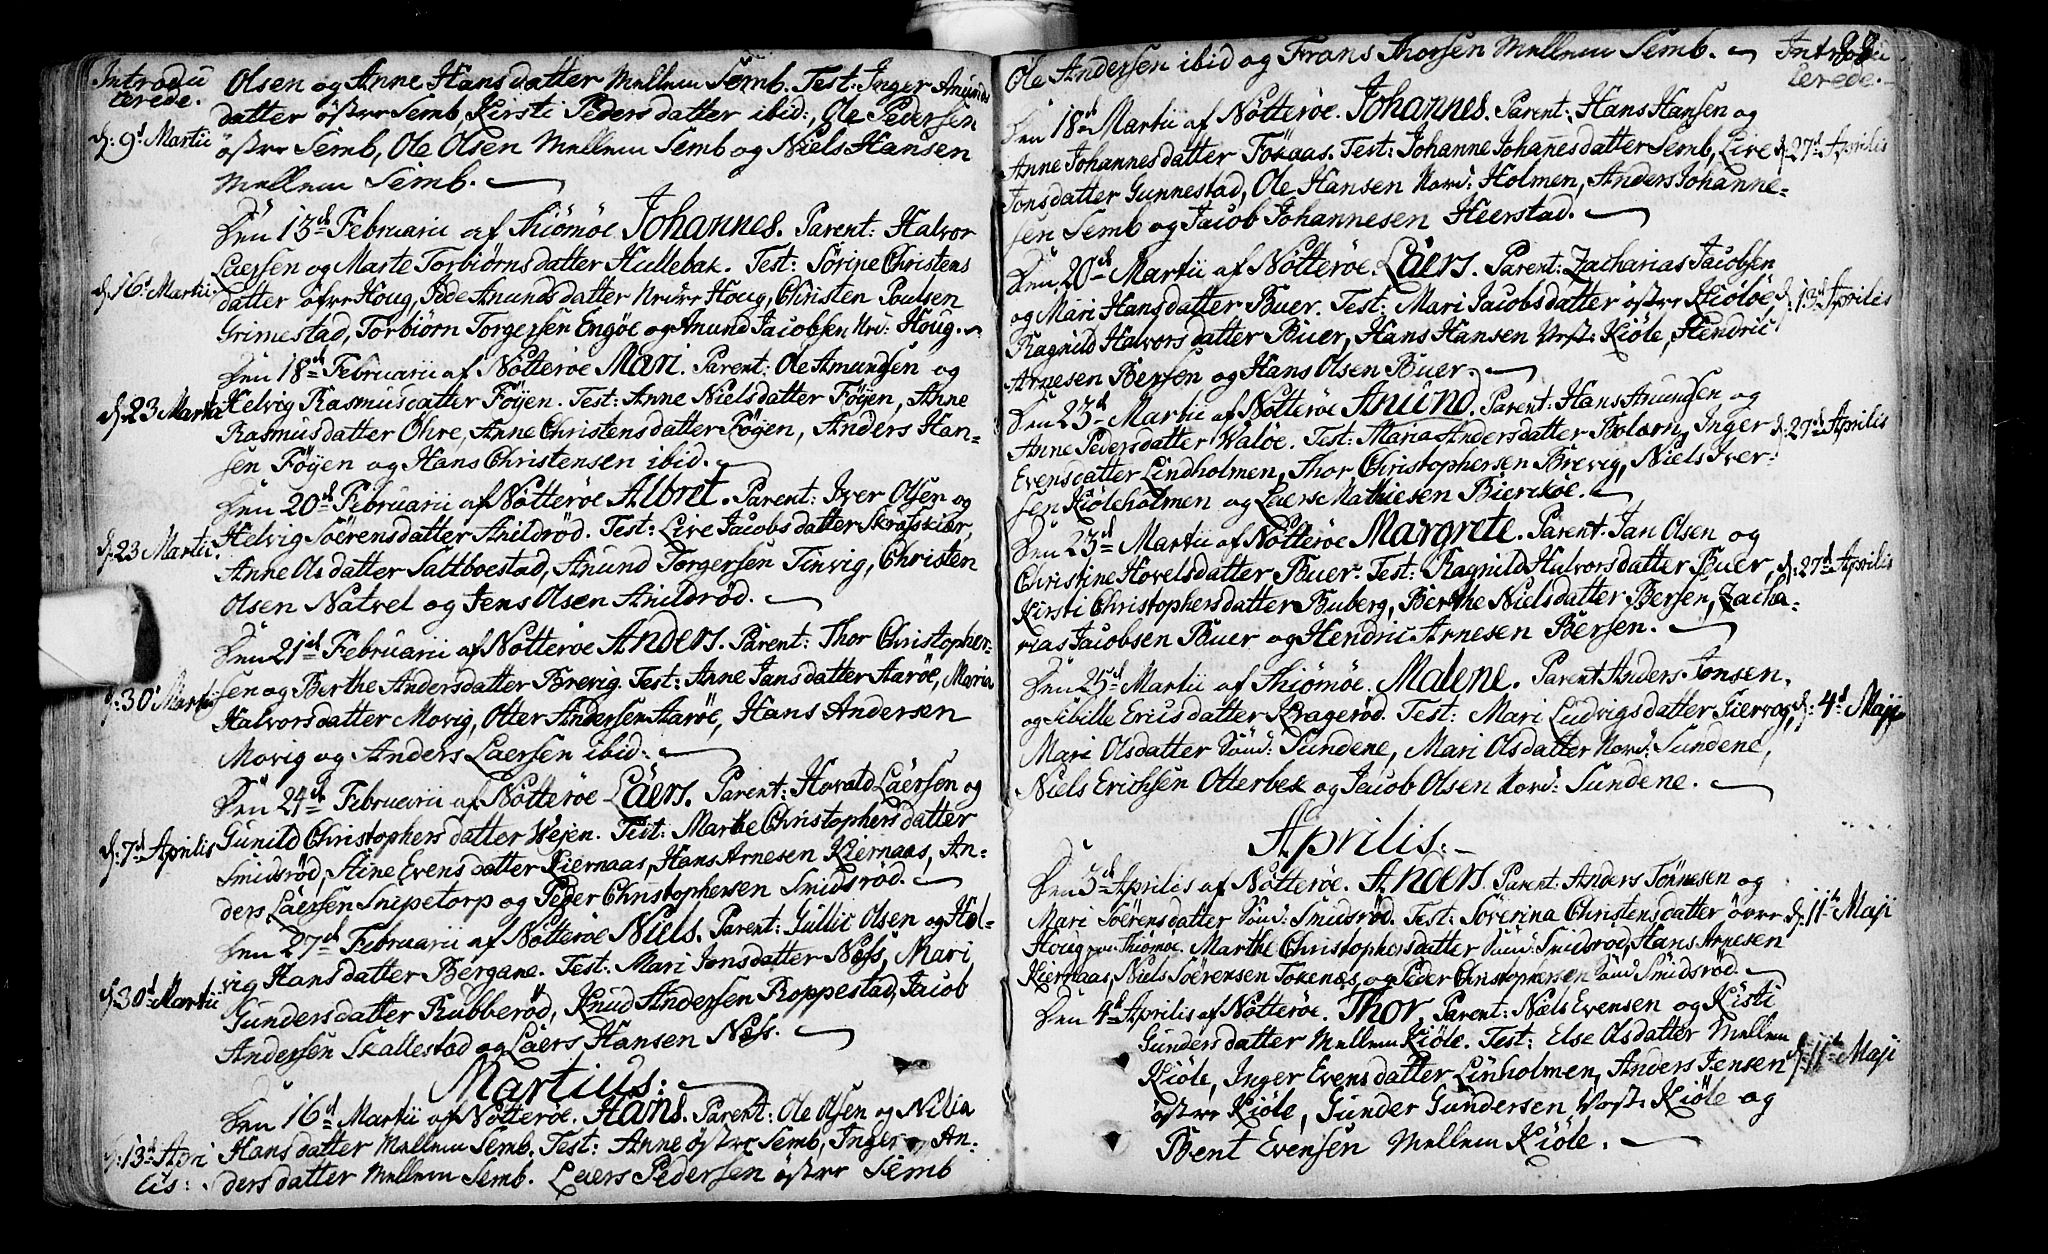 Introdu
cerede.
Olsen og Anne Hansdatter Mellem Semb. Test: Inger Anunds
datter östre Semb, Kirsti Pedersdatter ibid:, Ole Pedersen
d: 9d Martii
östre Semb, Ole Olsen Mellem Semb og Niels Hansen
Mellem Semb.
Den 13d Februarii af Thiömöe Johannes. Parent: Halvor
Laersen og Marte Torbiörnsdatter Hullebak. Test: Sörine Christens
d. 16d Martii
datter öfre Houg, Pede Anundsdatter Nedre Houg, Christen Poulsen
Grimestad, Torbiörn Torgersen Engöe og Anund Jacobsen Ned: Houg.
Den 18d Februarii af Nötteröe Mari. Parent: Ole Amundsen og
d. 23 Martii
Helvig Rasmusdatter Föyen. Test: Anne Nielsdatter Föyen, Anne
Rasmusdatter Ohre, Anne Christensdatter Föyen, Anders Han-
sen Föyen og Hans Christensen ibid.
Den 20d Februarii af Nötteröe Albret. Parent: Iver Olsen og
d. 23 Martii.
Helvig Soërensdatter Anildröd. Test: Live Jacobsdatter Skrafskiær,
Anne Olsdatter Saltboestad, Anund Torgersen Tinvig, Christen
Olsen Natvel og Jens Olsen Anildröd.
Den 21d Februarii af Nötteröe Anders. Parent: Thor Christopher-
d. 30d Martii
sen og Berthe Andersdatter Brevig. Test: Anne Jansdatter Aaröe, Maria
Halvorsdatter Movig, Otter Andersen Aaröe, Hans Andersen
Movig og Anders Laersen ibid:
Den 24d Februarii af Nötteröe Läers. Parent: Hovald Läersen og
d. 7d Aprilis
Gunild Christophersdatter Wejen. Test: Marthe Christophersdatter
Smidsröd, Stine Evensdatter Kiernaas, Hans Arnesen Kiernaas, An-
ders Läersen Snipetorp og Peder Christophersen Smidsröd.
Den 27d Februarii af Nötteröe Niels. Parent: Gullic Olsen og Hel-
vig Hansdatter Bergane. Test: Mari Jonsdatter Næss, Mari
d. 30d Martii
Gundersdatter Rubberöd, Knud Andersen Roppestad, Jacob
Andersen Skallestad og Läers Hansen Næss.
Martius:
Den 16d Martii af Nötteröe. Hans. Parent: Ole Olsen og Nilia
d. 13d Apri
lis:
Hansdatter Mellem Semb. Test: Anne östre Semb, Inger An-
dersdatter Mellem Semb. Laers Pedersen östre Semb
Ole Andersen ibid og Frans Thorsen Mellem Semb.
Introdu
cerede.
Den 18d Martii af Nötteröe. Johannes. Parent: Hans Hansen og
Anne Johannesdatter Fökaas. Test: Johanne Johanesdatter Semb, Live
d. 27d Aprilis
Jonsdatter Gunnestad, Ole Hansen Nord: Holmen, Anders Johanne-
sen Semb og Jacob Johannesen Heerstad.
Den 20d Martii af Nötteröe. Läers. Parent: Zacharias Jacobsen
og Mari Hansdatter Buer. Test: Mari Jacobsdatter östre Kiölöe,
d. 13d Aprilis
Ragnild Halvorsdatter Buer, Hans Hansen Vest: Kiöle, Hendric
Arnesen Bersen og Hans Olsen Buer.
Den 23d Martii af Nötteröe Anund. Parent: Hans Anundsen og
Anne Pedersdatter Walöe. Test: Maria Andersdatter Bolærn, Inger
d. 27d Aprilis
Evensdatter Lindholmen, Thor Christophersen Brevig, Niels Iver-
sen Kiöleholmen og Laers Mathiesen Bierckøe.
Den 23d Martii af Nötteröe Margrete. Parent: Jan Olsen og
Christine Hovelsdatter Buer. Test: Ragnild Halvorsdatter Buer,
d. 27d Aprilis
Kirsti Christophersdatter Buberg, Berthe Nielsdatter Bersen, Zacha-
rias Jacobsen Buer og Hendric Arnesen Bersen.
Den 25d Martii af Thiömöe. Malene. Parent Anders Jonsen,
og Sibille Ericsdatter Krageröd. Test: Mari Ludvigsdatter Giervog,
d. 4d Maji
Mari Olsdatter Sönd: Sundene, Mari Olsdatter Nord: Sundene,
Niels Erichsen Otterbek og Jacob Olsen Nord: Sundene.
Aprilis.
Den 3d Aprilis af Nötteröe. Anders. Parent: Anders Tönnesen og
Mari Soërensdatter Sönd: Smidsröd. Test: Söverina Christensdatter övre
d. 11te Maji
Houg paa Thiömöe. Marthe Christophersdatter Sönd: Smidsröd, Hans Arnesen
Kiernaas, Niels Soërensen Tokenæs, og Peder Christophersen Sönd: Smidsröd
Den 4d Aprilis af Nötteröe. Thor. Parent: Niels Evensen og Kisti
Gundersdatter Mellem Kiöle. Test: Else Olsdatter Mellem
d. 11te Maji
Kiöle, Inger Evensdatter Linholmen, Anders Jensen
östre Kiöle, Gunder Gundersen, Vest: Kiöle og
Bent Evensen Mellem Kiöle.